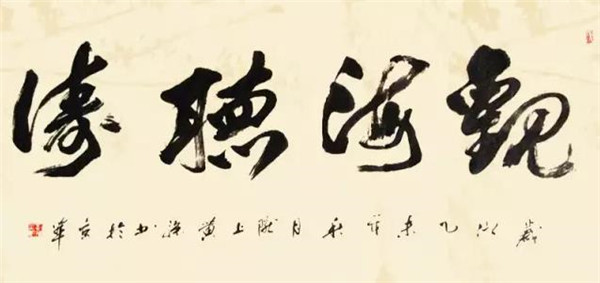 觀海聽濤
歲次乙未年秋月隴上黄书於京華